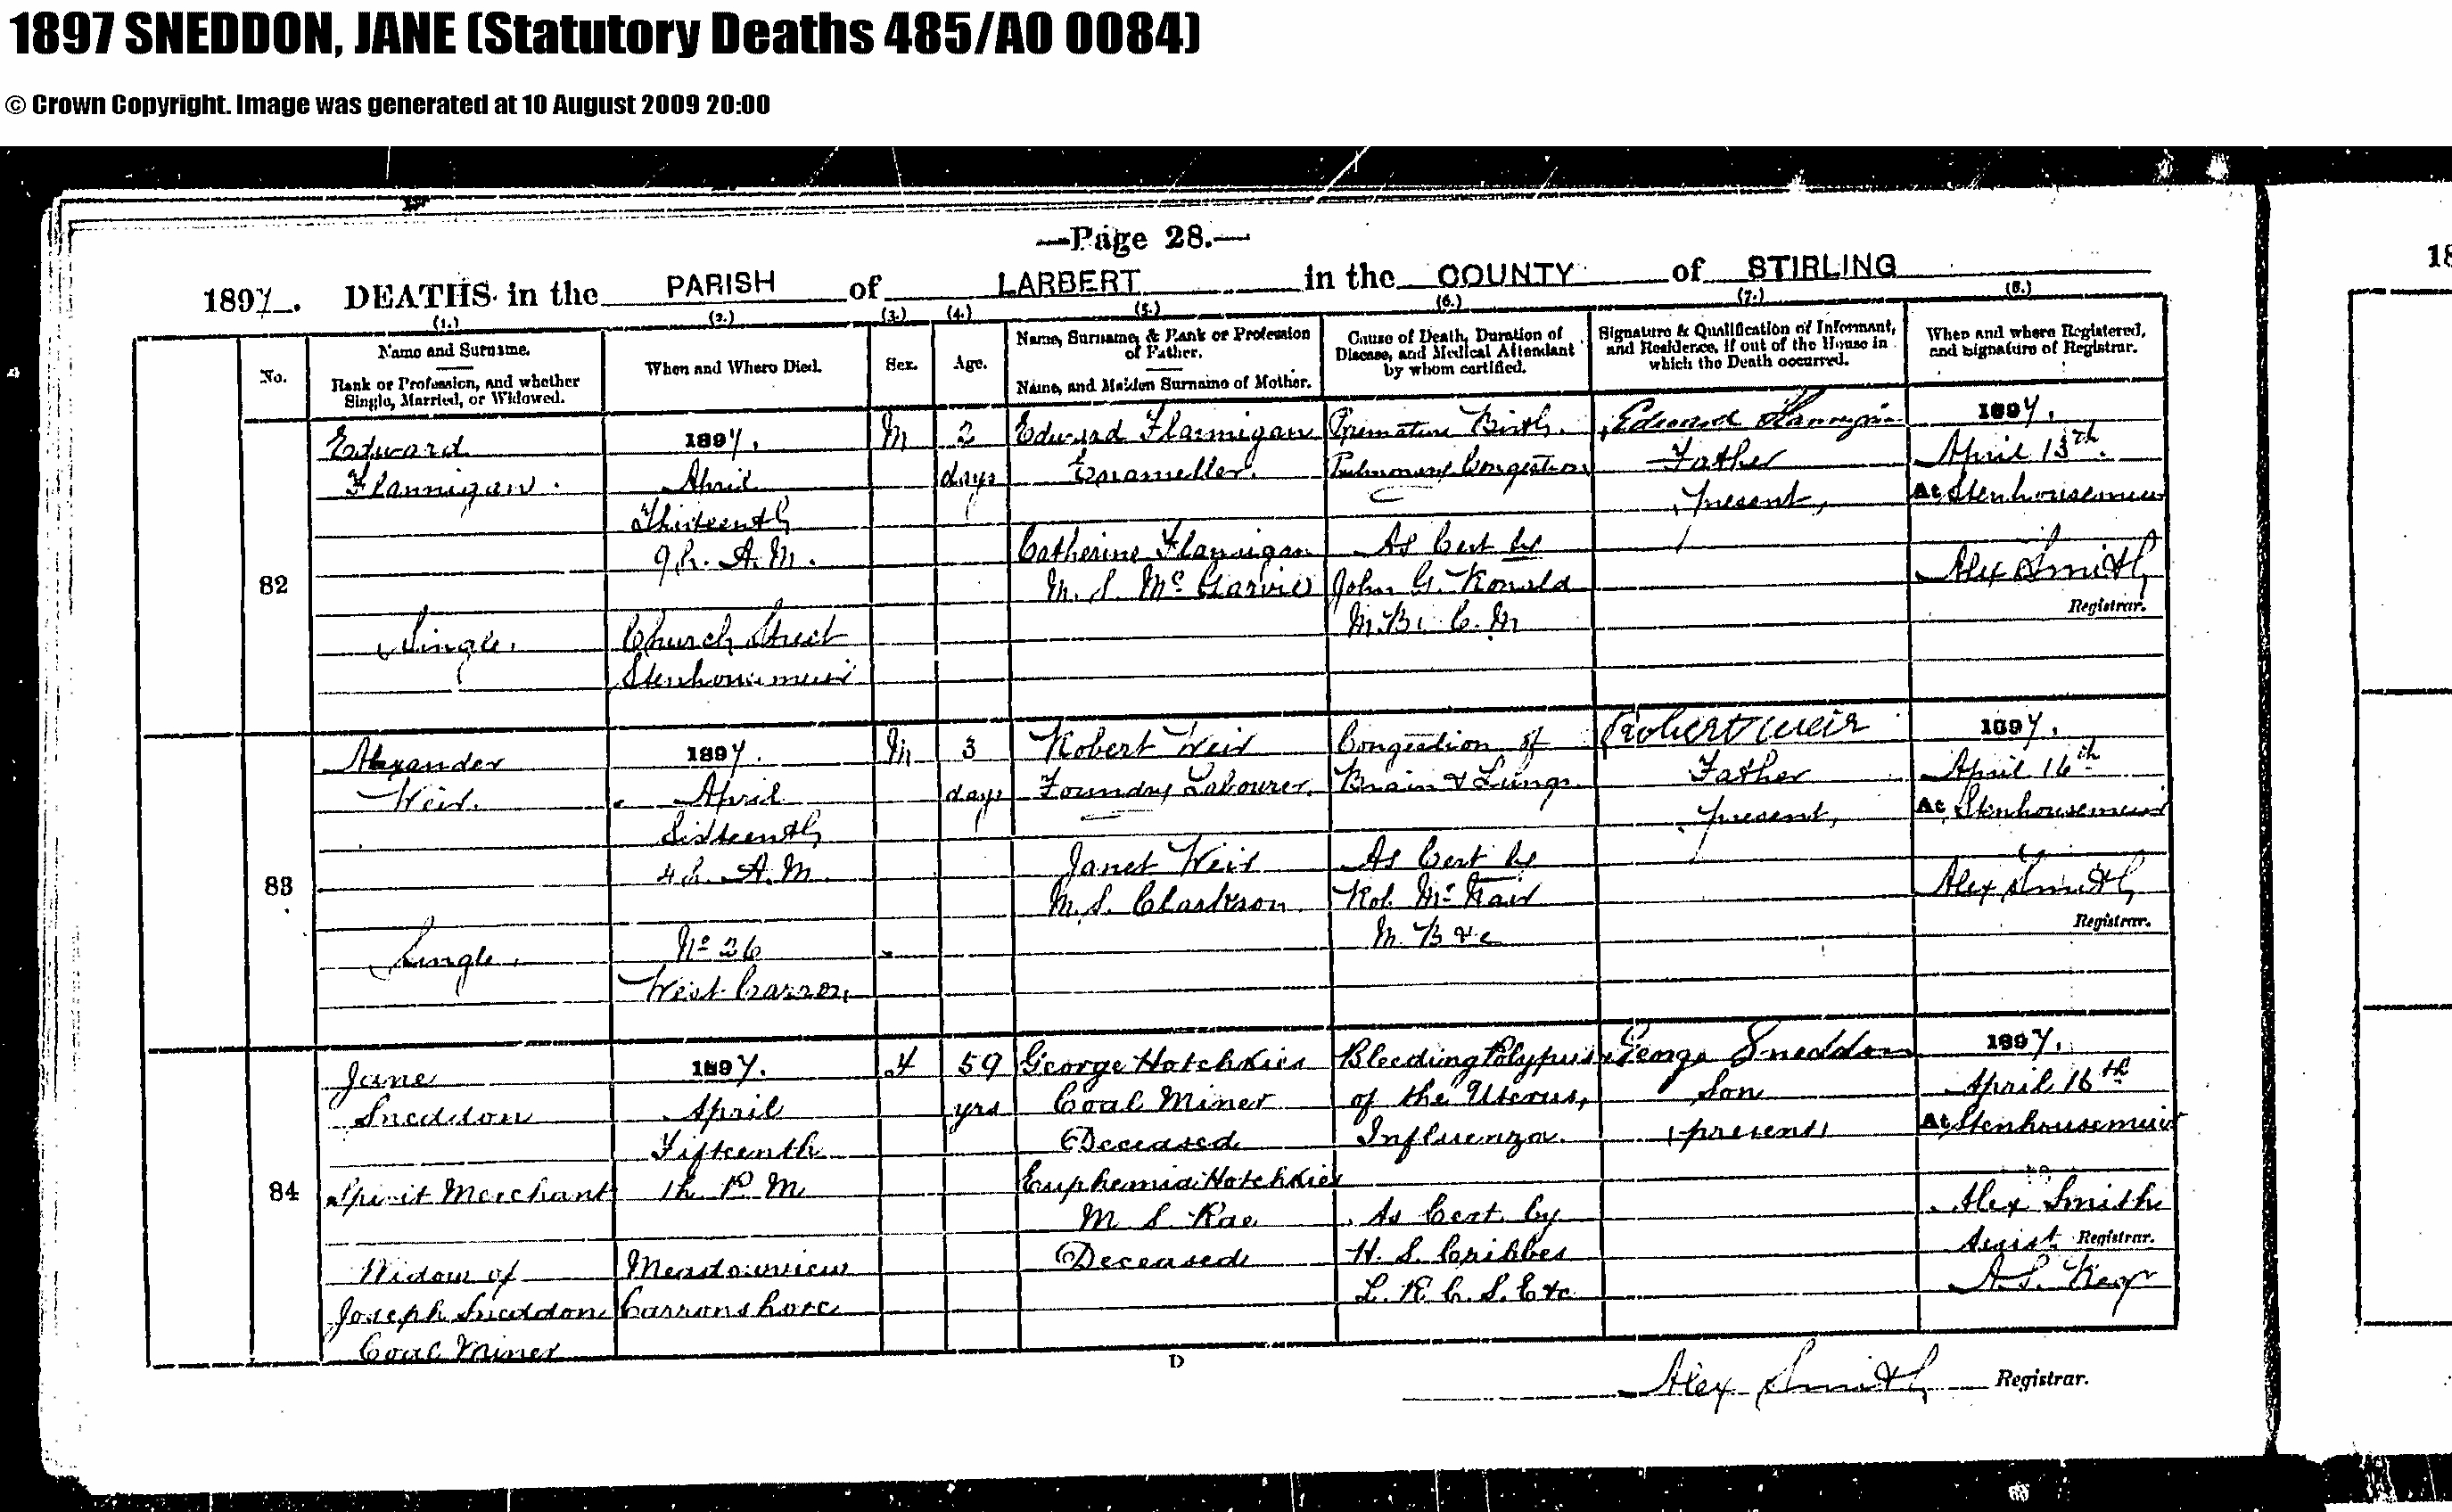 1897 SNEDDON, JANE (Statutory Deaths 485/A0 0084)
© Crown Copyright. Image was generated at 10 August 2009 20:00
—Page 28.—
1897. DEATHS in the PARISH of LARBERT in the COUNTY of STIRLING
(1.) (2.) (3.) (4.) (5.) (6.) (7.) (8.)
No.
Name and Surname.
Rank or Profession, and whether
Single, Married, or Widowed.
When and Where Died.
Sex.
Age.
Name, Surname, & Rank or Profession
of Father.
Name, and Maiden Surname of Mother.
Cause of Death, Duration of
Disease, and Medical Attendant
by whom certified.
Signature & Qualification of Informant,
and Residence, if out of the House in
which the Death occurred.
When and where Registered,
and Signature of Registrar.
82
Edward
Flannigan.
Single.
1897.
April
Thirteenth
9h. A.M.
Church Street
Stenhousemuir
M
2
days
Edward Flannigan
Enameller.
Catherine Flannigan
M.S. McGarvie
Premature Birth.
Pulmonary Congestion
As Cert by
John G. Ronald
M.B. C.M
Edward Flannigan
Father
present,
1897.
April 13th.
At Stenhousemuir
Alex Smith
Registrar.
83
Alexander
Weir.
Single.
1897.
April
Sixteenth
4h. A.M.
No 26
West Carron,
M
3
days
Robert Weir
Foundry Labourer.
Janet Weir
M.S. Clarkson.
Congestion of
Brain & Lungs
As Cert by
Rob. McNair
M.B &c
Robert Weir
Father
present,
1897.
April 16th
At Stenhousemuir
Alex Smith
Registrar.
84
Jane
Sneddon
Spirit Merchant
Widow of
Joseph Sneddon
Coal Miner
1897.
April
Fifteenth
1h P M
Meadowview
Carronshore
F
59
yrs
George Hotchkies
Coal Miner
Deceased
Euphemia Hotchkies
M S Rae
Deceased
Bleeding Polypus
of the Uterus,
Influenza.
As Cert. by
H. S. Cribbes
L. R. C. S. E &c
George Sneddon
Son
(present)
1897.
April 16th
At Stenhousemuir
Alex Smith
Assist. Registrar.
D
Alex Smith Registrar.